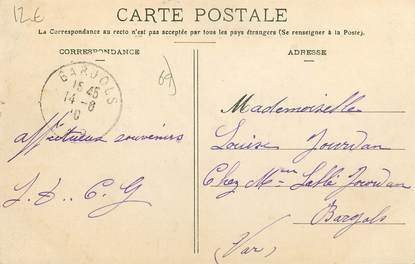 12€
CARTE POSTALE
La Correspondance au recto n'est pas acceptée par tous les pays étrangers (Se renseigner à la Poste).
CORRESPONDANCE
ADRESSE
BARJOLS
15 45
14 - 8
Mademoiselle
Louise Jourdan
Chez Mme Jourdan
Bargols
(Var)
affectueux souvenirs
J. D. C. G